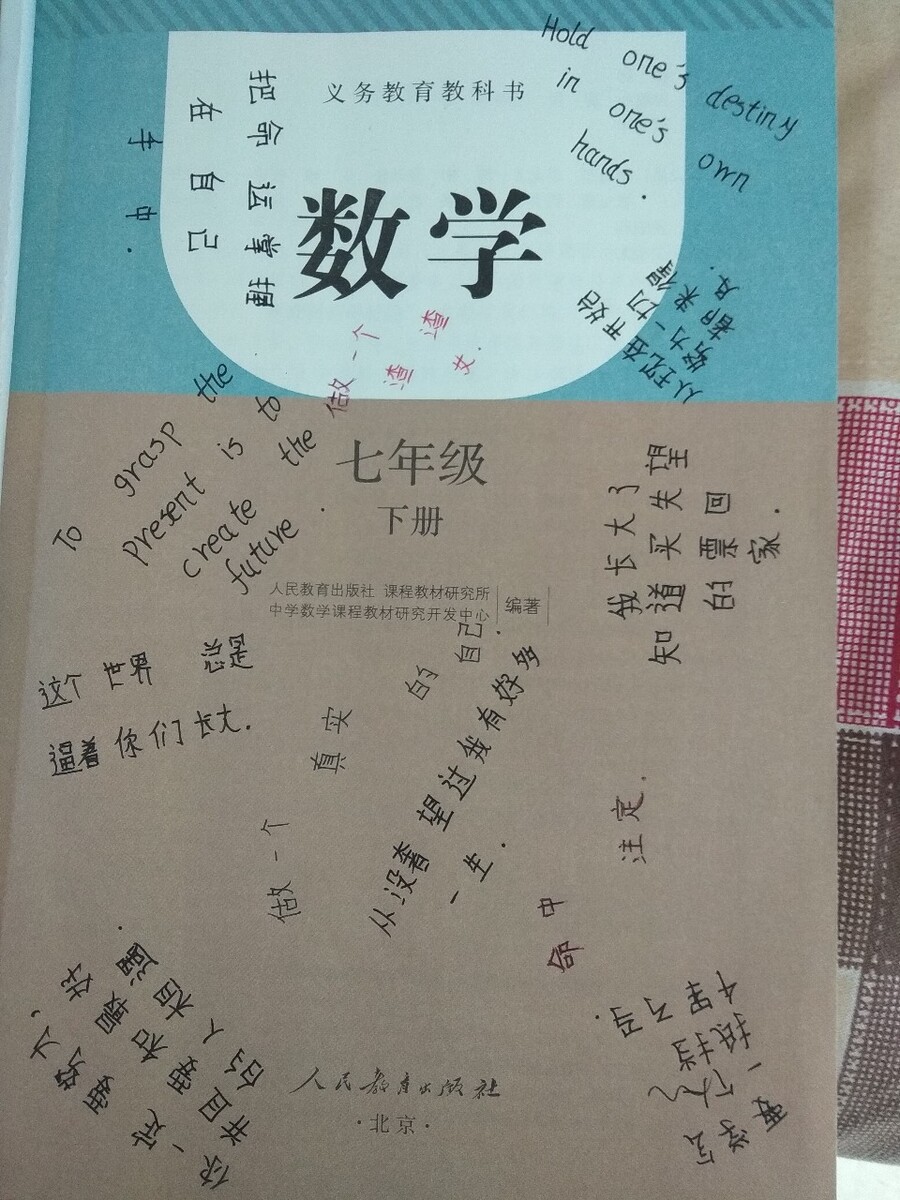 义务教育教科书
数学
七年级
下册
人民教育出版社 课程教材研究所
中学数学课程教材研究开发中心
编著
人民教育出版社
·北京·
把命运掌握
在自己
手中.
Hold one's destiny
in one's own
hands.
做一个渣
渣女.
从现在开始
努力一切
都来得及.
To grasp the
present is to
create the
future.
我长大了
知道买失望
的票回
家.
这个世界 总是
逼着你们长大.
做一个真实的自己.
从没奢望过我有好多
一生.
命中注定.
一定要努力.
并且要和最好
的人相遇.
学会